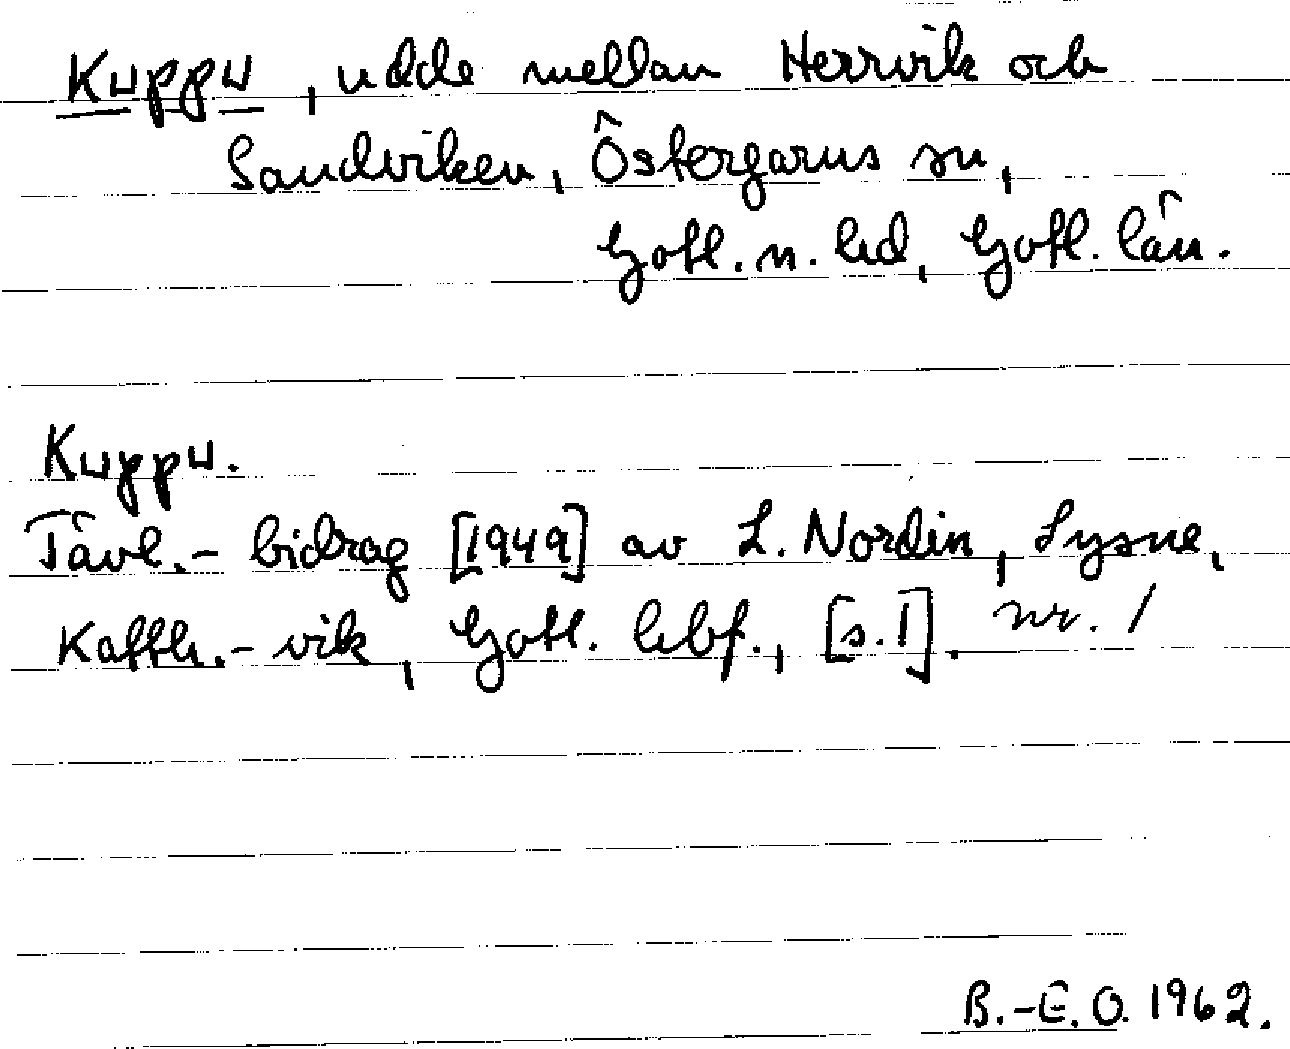 Kuppu, udde mellan Herrvik och
Sandviken, Östergarns sn,
Gotl. n. hd, Gotl. län.
Kuppu.
Tävl.- bidrag [1949] av L. Nordin, Lysne,
Katth.- vik, Gotl. hbf., [s.1]. nr. 1
B.-E. O. 1962.